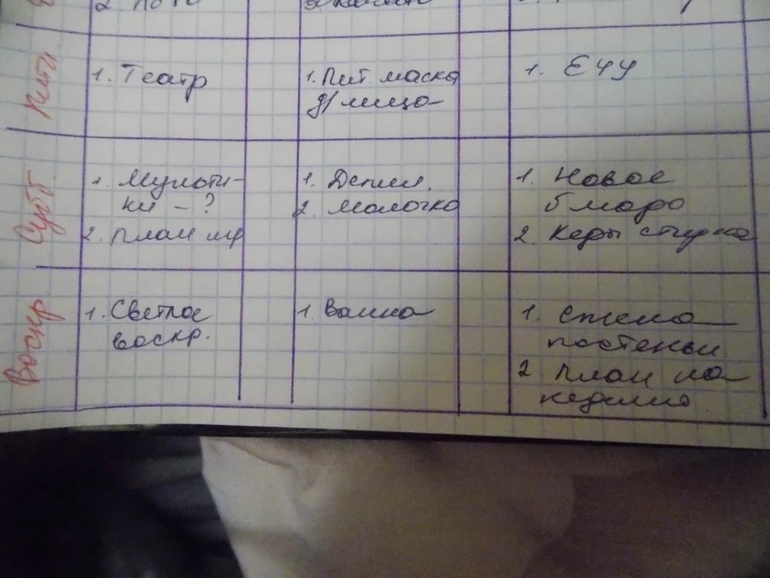 Пятн.
1. Театр
1. Пит. маска
д/лица
1. ЕЧУ
Субб.
1. Мульти-
ки - ?
2. План
1. Депил.
2. Молочко
1. Новое
блюдо
2. Кеды стирка
Воскр
1. Светлое
воскр.
1. Ванна
1. Смена
постельн
2. План на
неделю